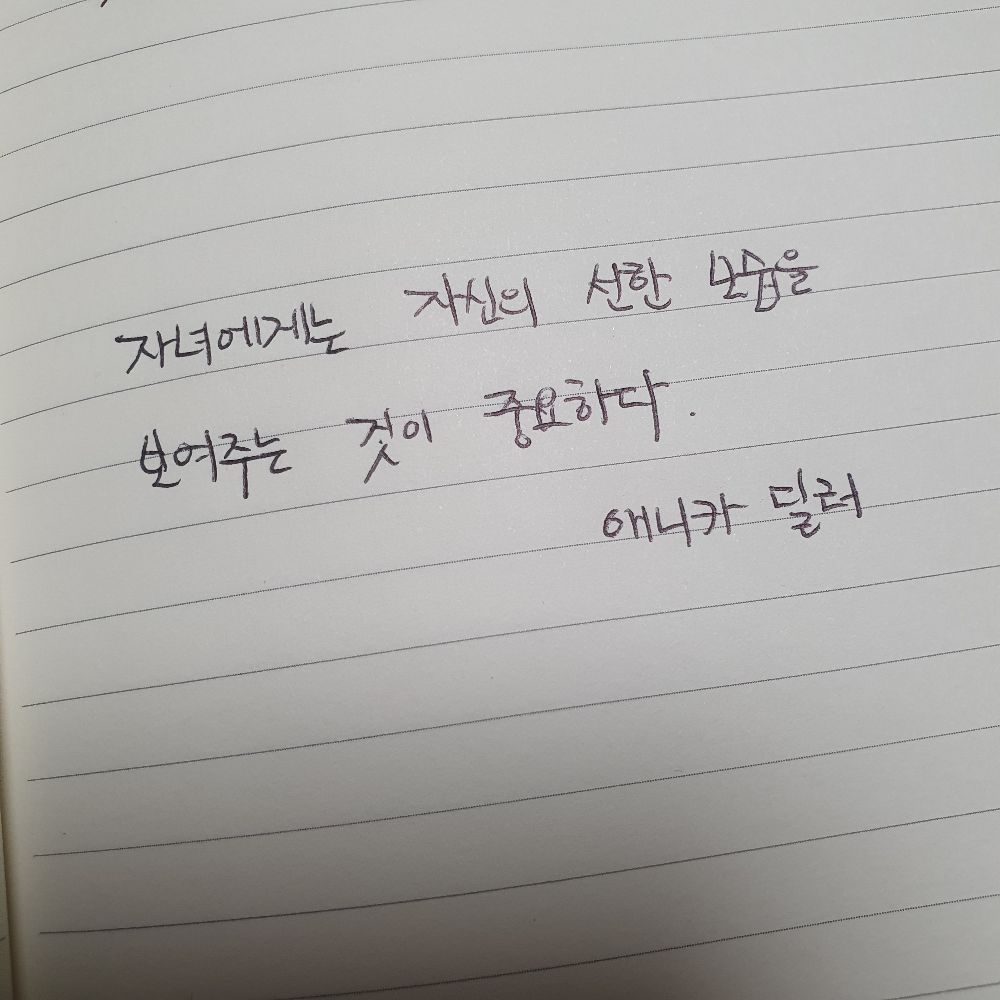 자녀에게는 자신의 선한 모습을
보여주는 것이 중요하다.
애니카 딜러